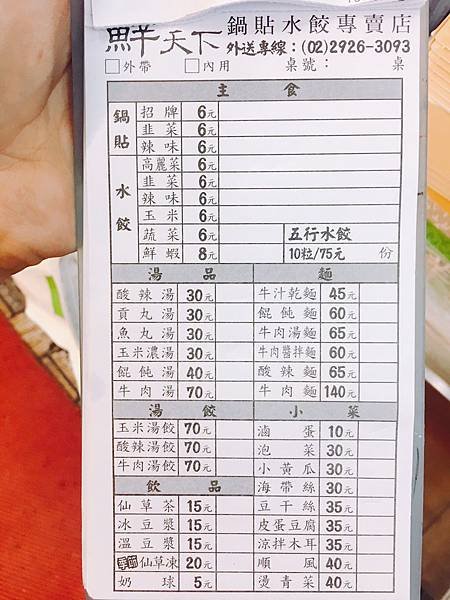 鮮天下 鍋貼水餃專賣店
外送專線：(02)2926-3093
□外帶 □內用 桌號： 桌
主食
鍋貼
招牌 6元
韭菜 6元
辣味 6元
水餃
高麗菜 6元
韭菜 6元
辣味 6元
玉米 6元
蔬菜 6元 五行水餃
鮮蝦 8元 10粒/75元 份
湯品 麵
酸辣湯 30元 牛汁乾麵 45元
貢丸湯 30元 餛飩麵 60元
魚丸湯 30元 牛肉湯麵 65元
玉米濃湯 30元 牛肉醬拌麵 60元
餛飩湯 40元 酸辣麵 65元
牛肉湯 70元 牛肉麵 140元
湯餃 小菜
玉米湯餃 70元 滷蛋 10元
酸辣湯餃 70元 泡菜 30元
牛肉湯餃 70元 小黃瓜 30元
飲品 海帶絲 30元
仙草茶 15元 豆干絲 35元
冰豆漿 15元 皮蛋豆腐 35元
溫豆漿 15元 涼拌木耳 35元
仙草凍 20元 順風 40元
奶球 5元 燙青菜 40元